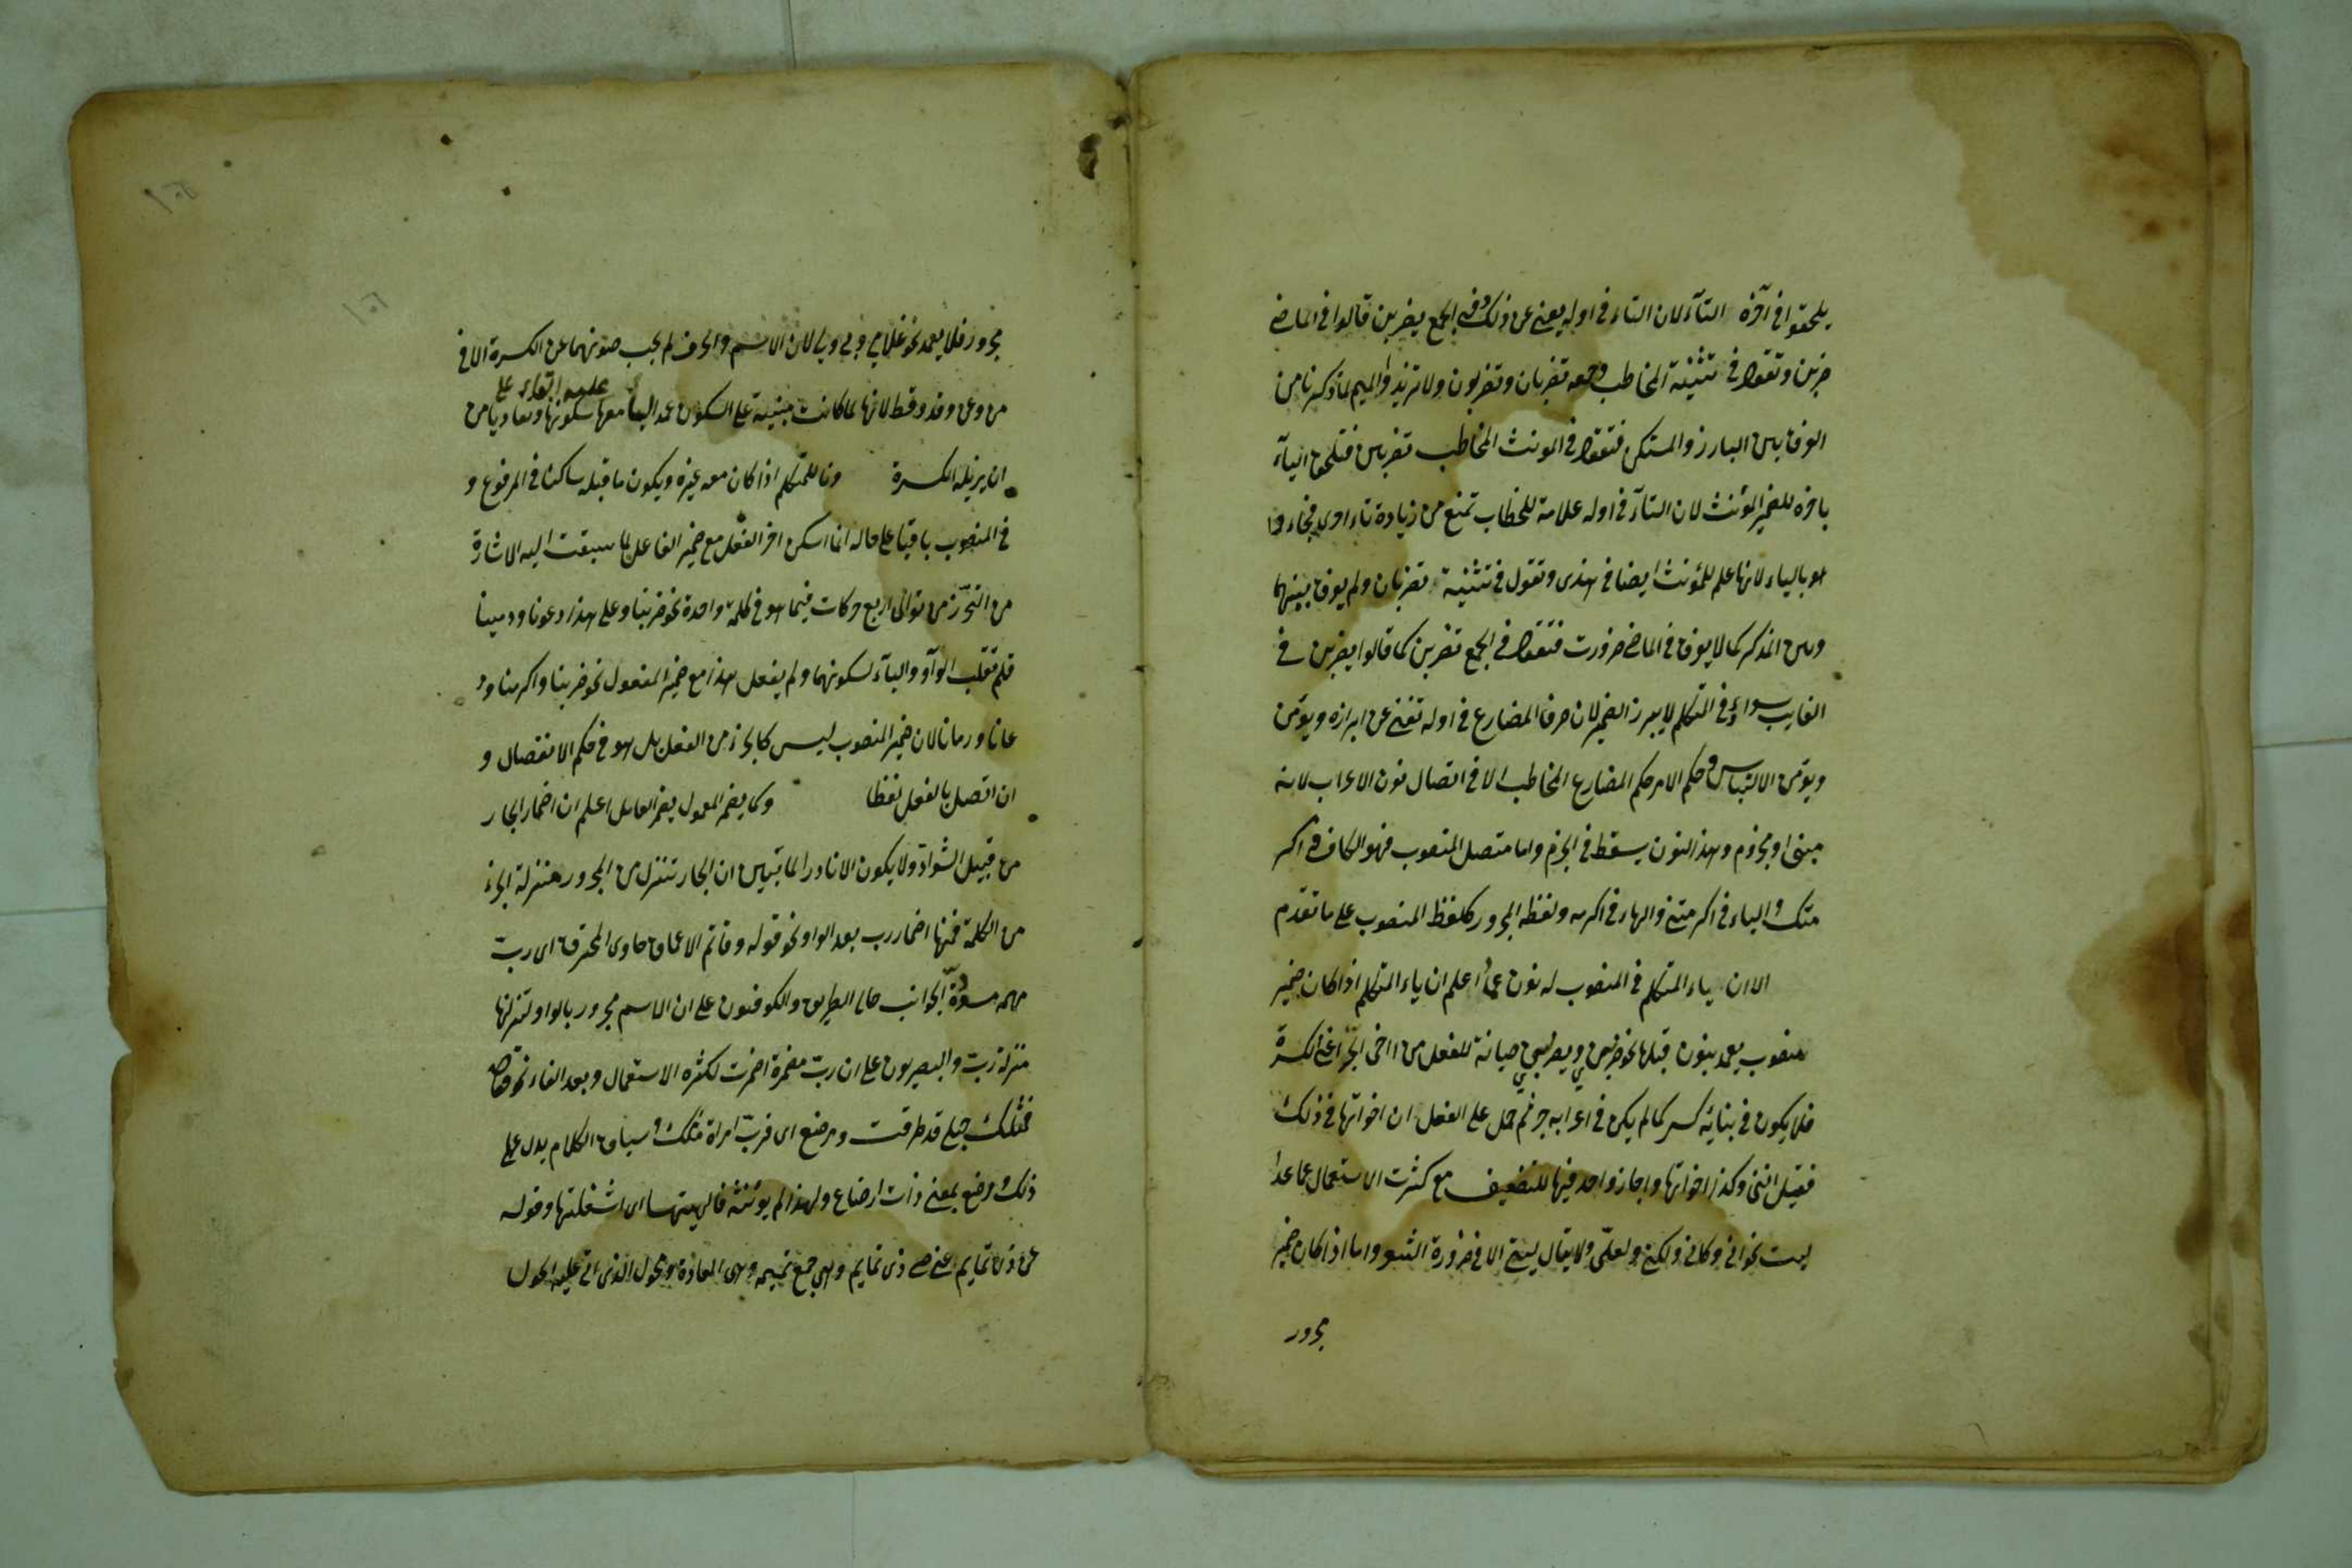 يلحقوا في آخره التآء لان التاء في اوله يغني عن ذلك وفي الجمع يضربن قالوا في الماضي
ضربن وتقول في تثنية المخاطب وجمعه تضربان وتضربون ولا تزيدوا الميم لما ذكرنا من
الفرق بين البارز والمستكن فتقول في المونث المخاطب تضربين فتلحق اليآء
باخره للضمير المؤنث لان التآء في اوله علامة للخطاب تمنع من زيادة تاء اخرى فجاءوا
هو بالياء لانها علم للمؤنث ايضا في هذى وتقول في تثنية تضربان ولم يفرق بينهما
وبين المذكر كما لا يفرق في الماضي ضرورت فتقول في الجمع تضربن كما قالوا يضربن في
الغايب سواء وفي المتكلم لا يبرز الضمير لان حرف المضارع في اوله تغني عن ابرازه ويؤمن
ويؤمن الالتباس وحكم الامر حكم المضارع المخاطب الا في اتصال نون الاعراب لانه
مبني او مجزوم وهذا النون يسقط في الجزم واما متصل المنصوب فهو الكاف في اكر
متك والياء في اكرمتني والهاء في اكرمه ولفظه المجرور كلفظ المنصوب على ما تقدم
الا ان ياء المتكلم في المنصوب له نون عماد اعلم ان ياء المتكلم اذا كان ضمير
منصوب يعمد بنون قبلها نحو ضربني ويضربني صيانة للفعل من اخى الجر اعني الكسرة
فلا يكون في بنائه كسر كما لم يكن في اعرابه جر ثم حمل على الفعل ان اخواتها في ذلك
فقيل انني وكذا اخواتها واجاز واحد فيها للتضعيف مع كثرت الاستعمال عما عدا
ليت نحو اني وكاني ولكني ولعلي ولا يقال ليتي الا في ضرورة الشعر واما اذا كان ضمير
مجرور
مجرور فلا يعمد نحو غلامي وبي ولي لان الاسم والحرف لم يجب صونهما عن الكسرة الا في
من وعن وقد وقط لانها لما كانت مبنية على السكون عمد اليا معها سكونها وتفاديا من
عليه ابقاء على
ان يزيله الكسرة ونا للمتكلم اذا كان معه غيره ويكون ما قبله ساكنا في المرفوع و
في المنصوب باقيا على حاله انما اسكن اخر الفعل مع ضمير الفاعل لما سبقت اليه الاشارة
من التحرز من توالى اربع حركات فيما هو في كلمة واحدة نحو ضربنا وعلى هذا دعونا ورمينا
فلم تقلب الوآو واليآء لسكونهما ولم يفعل هذا مع ضمير المفعول نحو ضربنا واكرمنا ود
عانا ورمانا لان ضمير المنصوب ليس كالجزء من الفعل بل هو في حكم الانفصال و
ان اتصل بالفعل لفظا وكما يضمر المعمول يضمر العامل اعلم ان اضمار الجار
من قبيل الشواذ ولا يكون الا نادرا لما بتبين ان الجار تتنزل من المجرور منزلة الجزء
من الكلمة فمنها اضمار رب بعد الواو نحو قوله وقاتم الاعماق حاوى المخترق اى رب
مهمه مسودة الجوانب خالى الطريق والكوفيون على ان الاسم مجرور بالواو لتنزلها
منزلة رب والبصريون على ان رب مضمرة اضمرت لكثره الاستعمال وبعد الفاء نحو قوله
فمثلك حبلى قد طرقت ومرضع اى فرب امراة مثلك وسياق الكلام يدل على
ذلك ومرضع بمعنى ذات ارضاع ولهذا لم يؤنثه فالهيتها اى اشغلتها وقوله
عن ذى تمايم عن صبى ذى تمايم وهى جمع تميمه وهى المعاذة ومحول الذى اتى عليه الحول